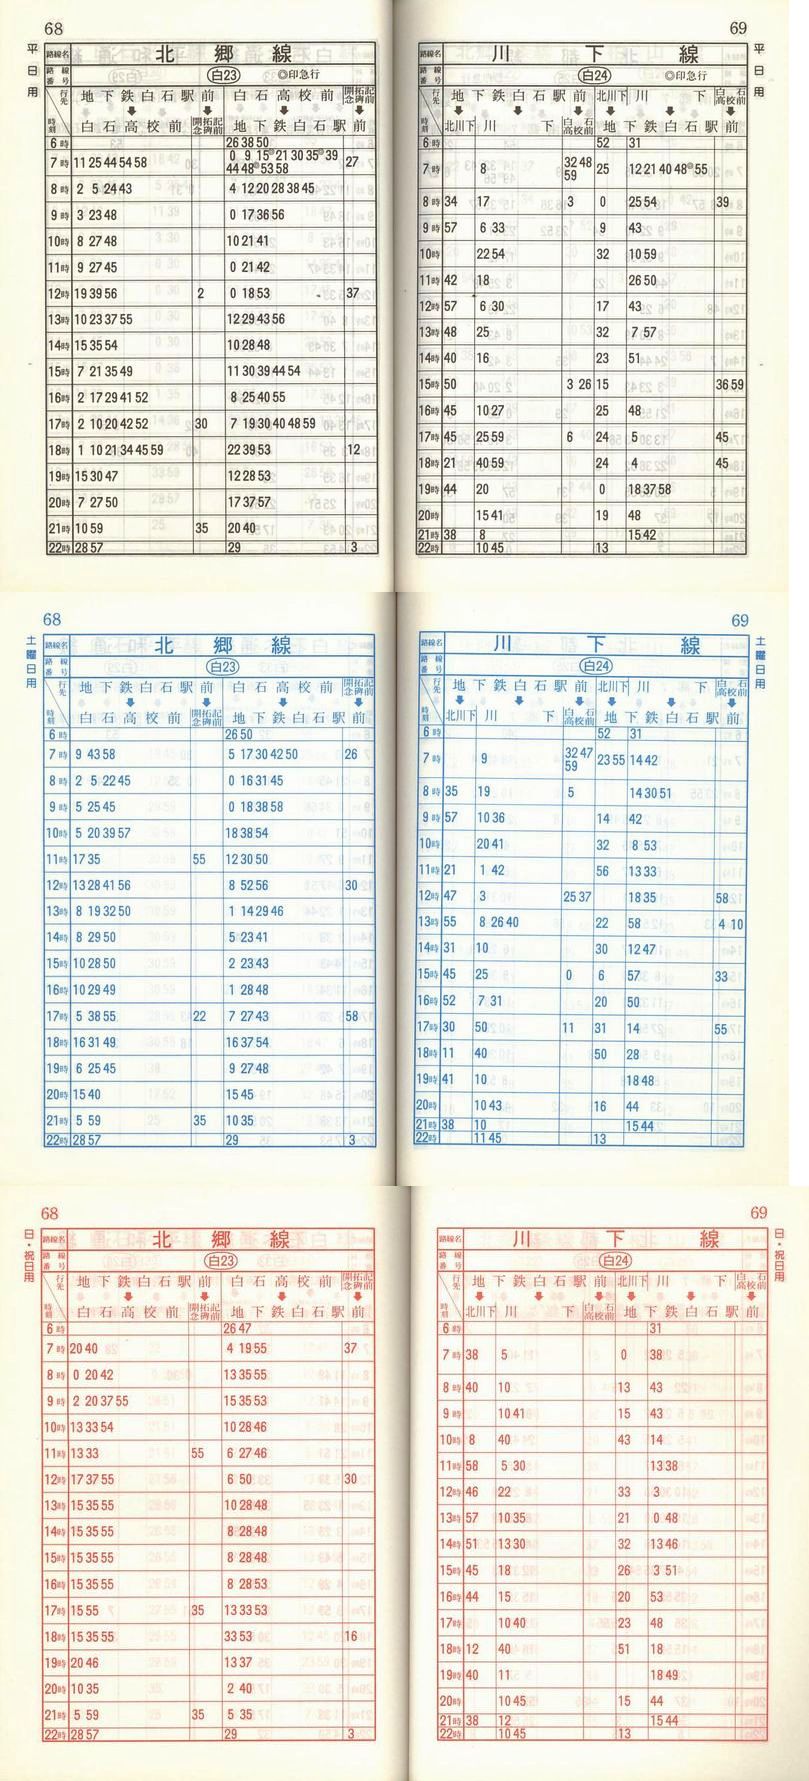 68
平日用
路線名 北郷線
路線番号 白23 ◎印急行
行先 地下鉄白石駅前 白石高校前 開拓記念碑前
時刻 白石高校前 開拓記念碑前 地下鉄白石駅前
6時 26 38 50
7時 11 25 44 54 58 0 9 15◎ 21 30 35◎ 39 27
44 48◎ 53 58
8時 2 5 24 43 4 12 20 28 38 45
9時 3 23 48 0 17 36 56
10時 8 27 48 10 21 41
11時 9 27 45 0 21 42
12時 19 39 56 2 0 18 53 37
13時 10 23 37 55 12 29 43 56
14時 15 35 54 10 28 48
15時 7 21 35 49 11 30 39 44 54
16時 2 17 29 41 52 8 25 40 55
17時 2 10 20 42 52 30 7 19 30 40 48 59
18時 1 10 21 34 45 59 22 39 53 12
19時 15 30 47 12 28 53
20時 7 27 50 17 37 57
21時 10 59 35 20 40
22時 28 57 29 3
69
平日用
路線名 川下線
路線番号 白24 ◎印急行
行先 地下鉄白石駅前 北川下 川下 白石高校前
時刻 北川下 川下 白石高校前 地下鉄白石駅前
6時 52 31
7時 8 32 48 59 25 12 21 40 48◎ 55
8時 34 17 3 0 25 54 39
9時 57 6 33 9 43
10時 22 54 32 10 59
11時 42 18 26 50
12時 57 6 30 17 43
13時 48 25 32 7 57
14時 40 16 23 51
15時 50 3 26 15 36 59
16時 45 10 27 25 48
17時 45 25 59 6 24 5 45
18時 21 40 59 24 4 45
19時 44 20 0 18 37 58
20時 15 41 19 48
21時 38 8 15 42
22時 10 45 13
68
土曜日用
路線名 北郷線
路線番号 白23
行先 地下鉄白石駅前 白石高校前 開拓記念碑前
時刻 白石高校前 開拓記念碑前 地下鉄白石駅前
6時 26 50
7時 9 43 58 5 17 30 42 50 26
8時 2 5 22 45 0 16 31 45
9時 5 25 45 0 18 38 58
10時 5 20 39 57 18 38 54
11時 17 35 55 12 30 50
12時 13 28 41 56 8 52 56 30
13時 8 19 32 50 1 14 29 46
14時 8 29 50 5 23 41
15時 10 28 50 2 23 43
16時 10 29 49 1 28 48
17時 5 38 55 22 7 27 43 58
18時 16 31 49 16 37 54
19時 6 25 45 9 27 48
20時 15 40 15 45
21時 5 59 35 10 35
22時 28 57 29 3
69
土曜日用
路線名 川下線
路線番号 白24
行先 地下鉄白石駅前 北川下 川下 白石高校前
時刻 北川下 川下 白石高校前 地下鉄白石駅前
6時 52 31
7時 9 32 47 59 23 55 14 42
8時 35 19 5 14 30 51
9時 57 10 36 14 42
10時 20 41 32 8 53
11時 21 1 42 56 13 33
12時 47 3 25 37 18 35 58
13時 55 8 26 40 22 58 4 10
14時 31 10 30 12 47
15時 45 25 0 6 57 33
16時 52 7 31 20 50
17時 30 50 11 31 14 55
18時 11 40 50 28
19時 41 10 18 48
20時 10 43 16 44
21時 38 10 15 44
22時 11 45 13
68
日・祝日用
路線名 北郷線
路線番号 白23
行先 地下鉄白石駅前 白石高校前 開拓記念碑前
時刻 白石高校前 開拓記念碑前 地下鉄白石駅前
6時 26 47
7時 20 40 4 19 55 37
8時 0 20 42 13 35 55
9時 2 20 37 55 15 35 53
10時 13 33 54 10 28 46
11時 13 33 55 6 27 46
12時 17 37 55 6 50 30
13時 15 35 55 10 28 48
14時 15 35 55 8 28 48
15時 15 35 55 8 28 48
16時 15 35 55 8 28 53
17時 15 55 35 13 33 53
18時 15 35 55 33 53 16
19時 20 46 13 37
20時 10 35 2 40
21時 5 59 35 5 35
22時 28 57 29 3
69
日・祝日用
路線名 川下線
路線番号 白24
行先 地下鉄白石駅前 北川下 川下 白石高校前
時刻 北川下 川下 白石高校前 地下鉄白石駅前
6時 31
7時 38 5 0 38
8時 40 10 13 43
9時 10 41 15 43
10時 8 40 43 14
11時 58 5 30 13 38
12時 46 22 33 3
13時 57 10 35 21 0 48
14時 51 13 30 32 13 46
15時 45 18 26 3 51
16時 44 15 20 53
17時 10 40 23 48
18時 12 40 51 18
19時 40 11 18 49
20時 10 45 15 44
21時 38 12 15 44
22時 10 45 13